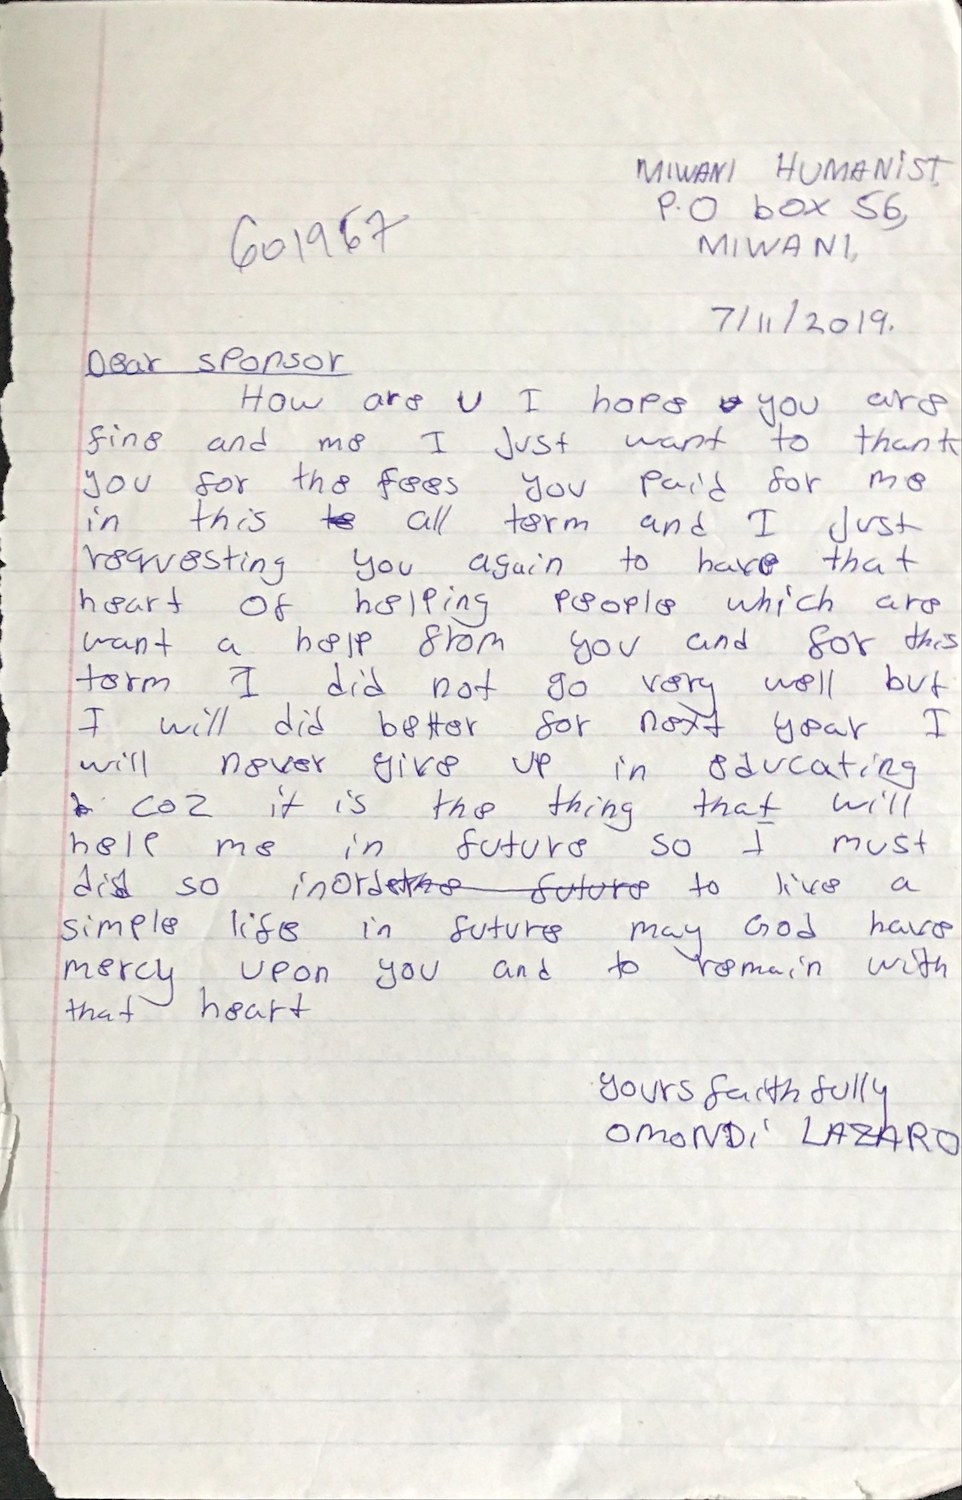 MIWANI HUMANIST
P.O box 56,
601967
MIWANI,
7/11/2019.
Dear sponsor
How are U I hope you are
fine and me I Just want to thank
you for the fees you paid for me
in this all term and I Just
requesting you again to have that
heart of helping people which are
want a help from you and for this
term I did not go very well but
I will did better for next year I
will never give up in educating
coz it is the thing that will
help me in future so I must
did so inorde the future to live a
simple life in future may God have
mercy upon you and to remain with
that heart
yours faithfully
OMONDi LAZARO